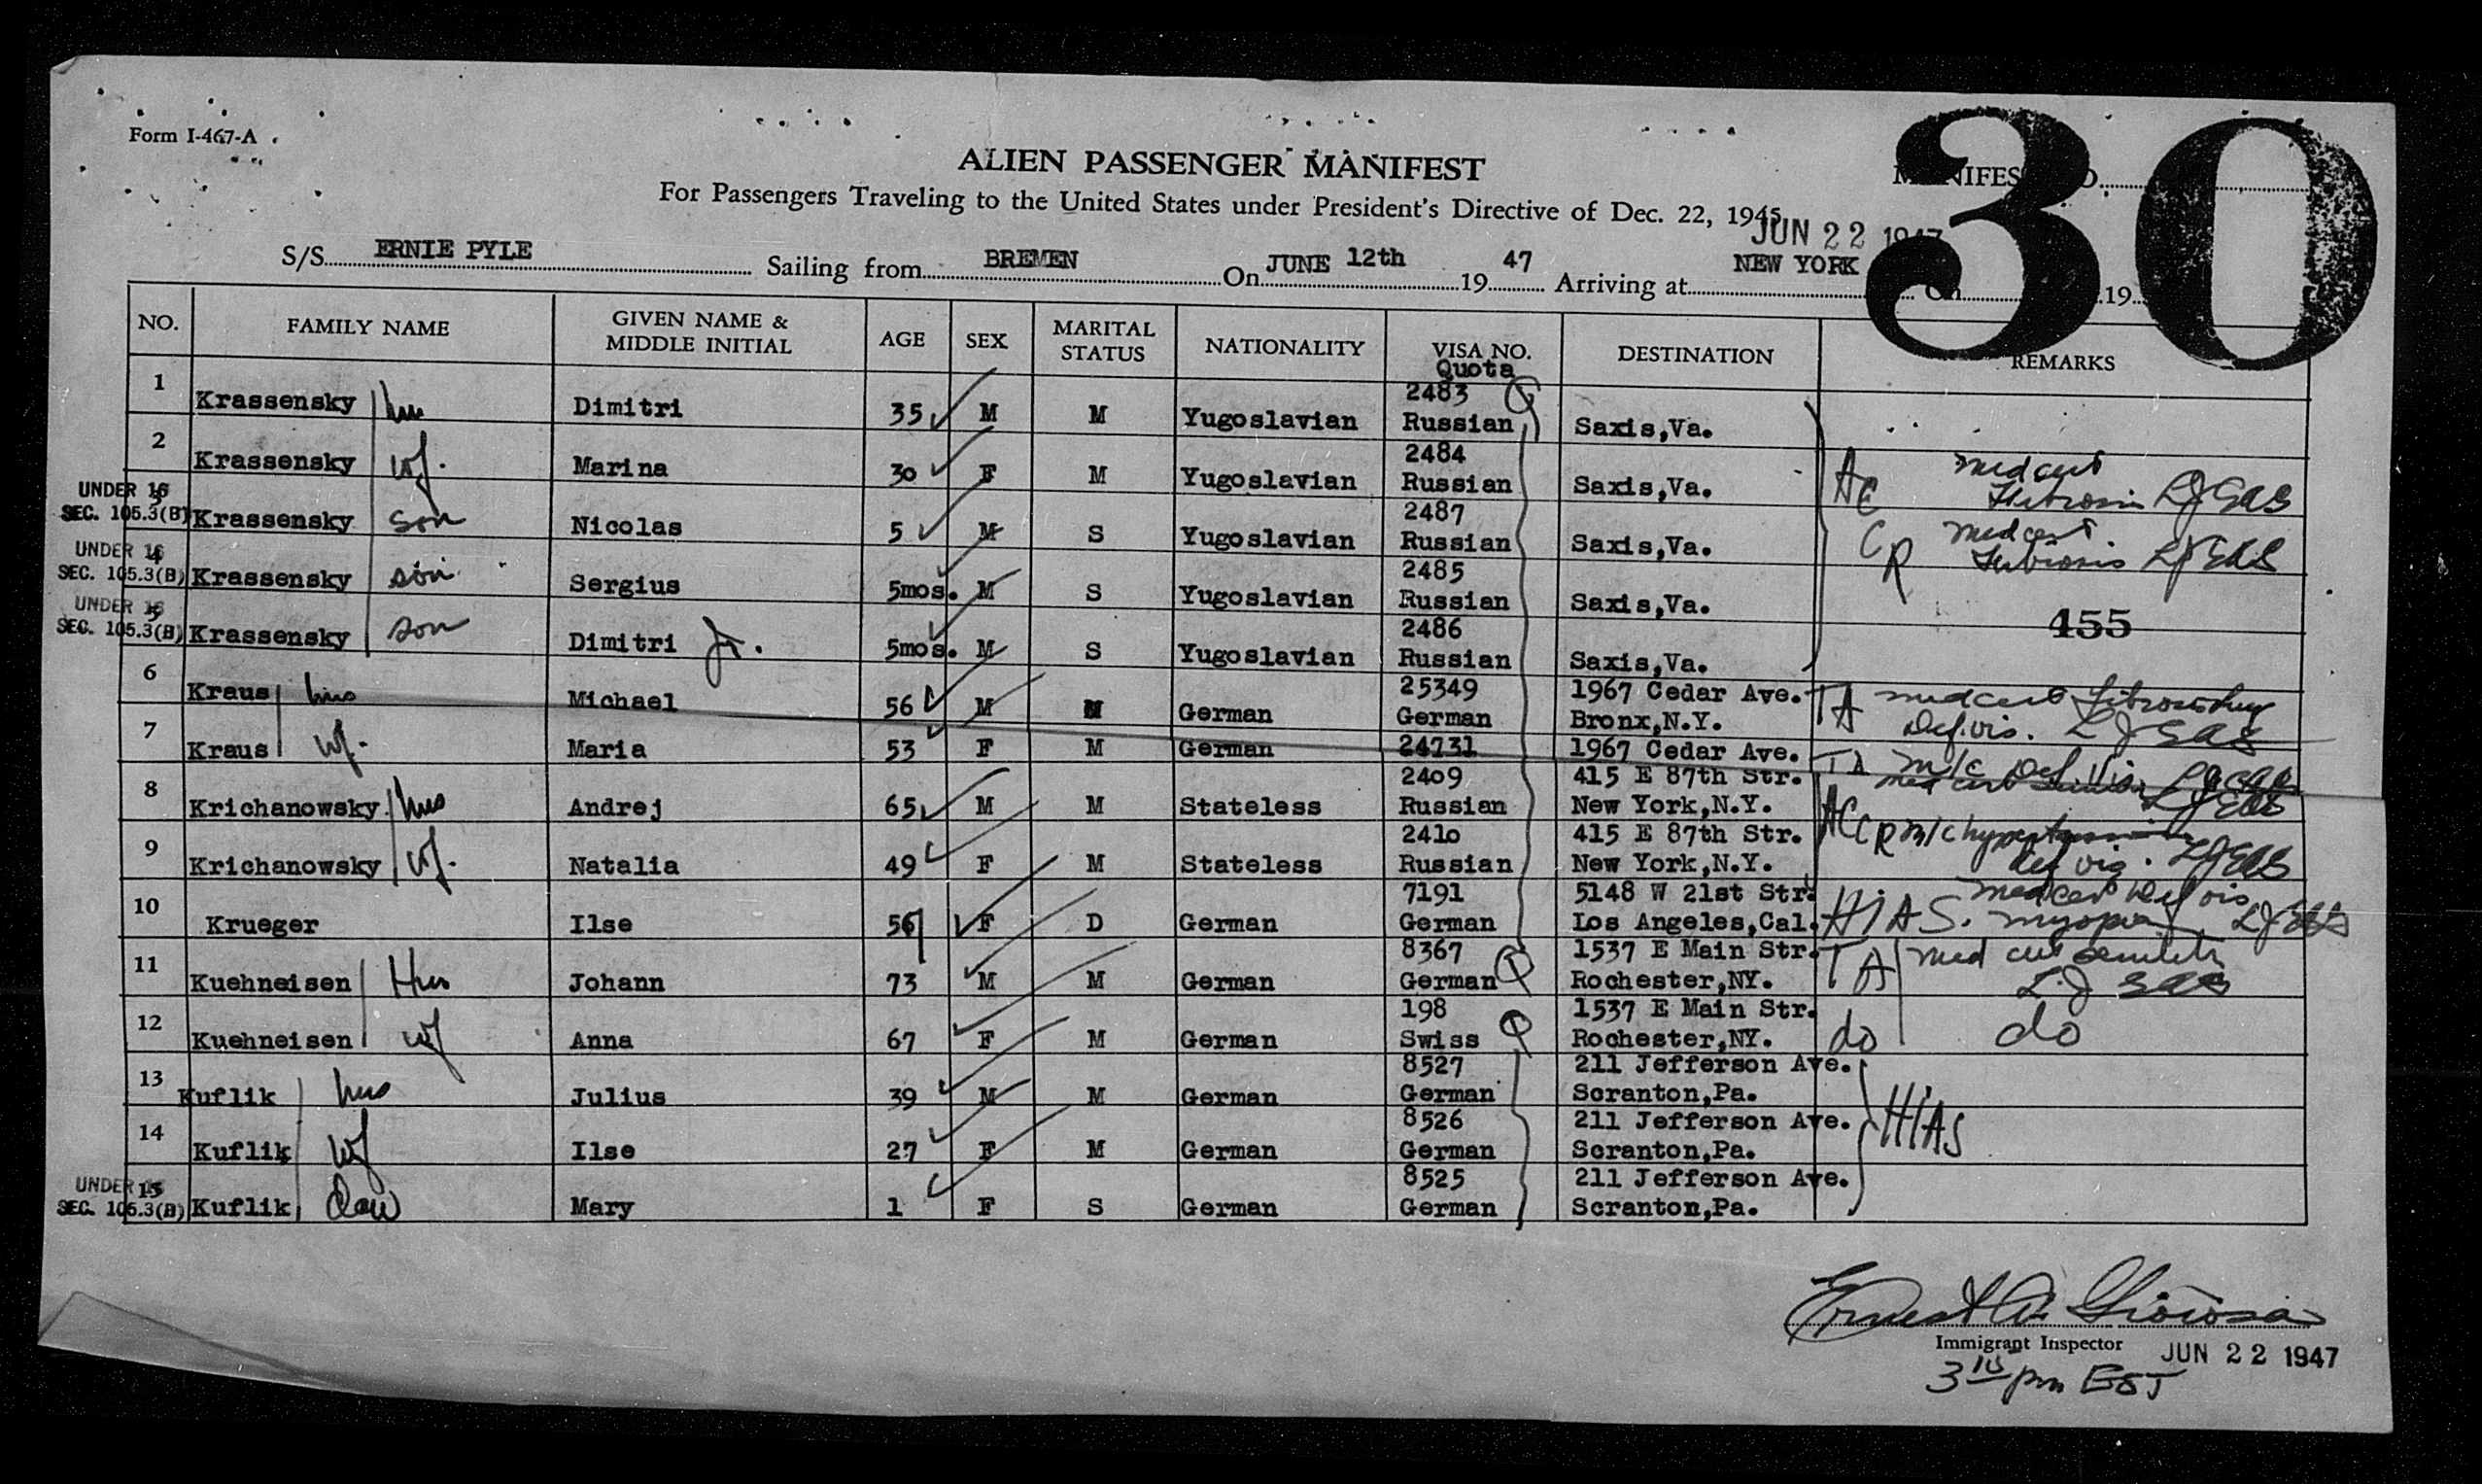 Form I-467-A
30
ALIEN PASSENGER MANIFEST
For Passengers Traveling to the United States under President's Directive of Dec. 22, 1945
JUN 22 1947
S/S ERNIE PYLE Sailing from BREMEN On JUNE 12th 19 47 Arriving at NEW YORK On 19
NO. FAMILY NAME GIVEN NAME & MIDDLE INITIAL AGE SEX MARITAL STATUS NATIONALITY VISA NO. Quota DESTINATION REMARKS
1 Krassensky hus Dimitri 35 M M Yugoslavian 2483 Russian Saxis,Va.
2 Krassensky wf. Marina 30 F M Yugoslavian 2484 Russian Saxis,Va. AC med cert LJ EAS
UNDER 16 SEC. 105.3(B) 3 Krassensky son Nicolas 5 M S Yugoslavian 2487 Russian Saxis,Va. CR med cert LJ EAS
UNDER 16 SEC. 105.3(B) 4 Krassensky son Sergius 5mos. M S Yugoslavian 2485 Russian Saxis,Va.
UNDER 16 SEC. 105.3(B) 5 Krassensky son Dimitri Jr. 5mos. M S Yugoslavian 2486 Russian Saxis,Va. 455
6 Kraus hus Michael 56 M M German 25349 German 1967 Cedar Ave. Bronx,N.Y. TA med cert Def. vis. LJ EAS
7 Kraus wf. Maria 53 F M German 24731 1967 Cedar Ave. TA m/c Def. Vis.
8 Krichanowsky hus Andrej 65 M M Stateless 2409 Russian 415 E 87th Str. New York,N.Y. med cert LJ EAS
9 Krichanowsky wf. Natalia 49 F M Stateless 2410 Russian 415 E 87th Str. New York,N.Y. AC CR m/c hypertension def vis. LJ EAS
10 Krueger Ilse 56 F D German 7191 German 5148 W 21st Str. Los Angeles,Cal. HIAS. med cert Def vis myopia LJ EAS
11 Kuehneisen Hus Johann 73 M M German 8367 German 1537 E Main Str. Rochester,NY. TA med cert senility LJ EAS
12 Kuehneisen wf Anna 67 F M German 198 Swiss 1537 E Main Str. Rochester,NY. do do
13 Kuflik hus Julius 39 M M German 8527 German 211 Jefferson Ave. Scranton,Pa.
14 Kuflik wf Ilse 27 F M German 8526 German 211 Jefferson Ave. Scranton,Pa. HIAS
UNDER 16 SEC. 105.3(B) 15 Kuflik Dau Mary 1 F S German 8525 German 211 Jefferson Ave. Scranton,Pa.
Immigrant Inspector JUN 22 1947
pm EST